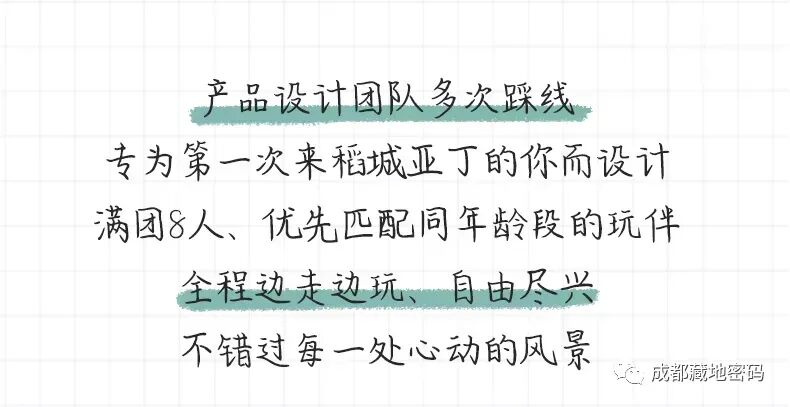 产品设计团队多次踩线
专为第一次来稻城亚丁的你而设计
满团8人、优先匹配同年龄段的玩伴
全程边走边玩、自由尽兴
不错过每一处心动的风景
成都藏地密码